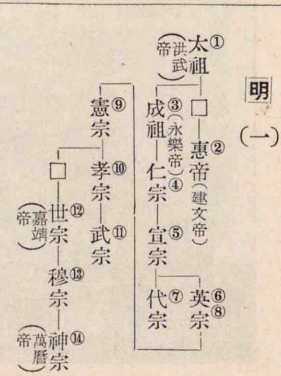 明
(一)
①太祖(洪武帝)
□
②惠帝(建文帝)
③成祖(永樂帝)
④仁宗
⑤宣宗
⑥⑧英宗
⑦代宗
⑨憲宗
⑩孝宗
⑪武宗
□
⑫世宗(嘉靖帝)
⑬穆宗
⑭神宗(萬曆帝)